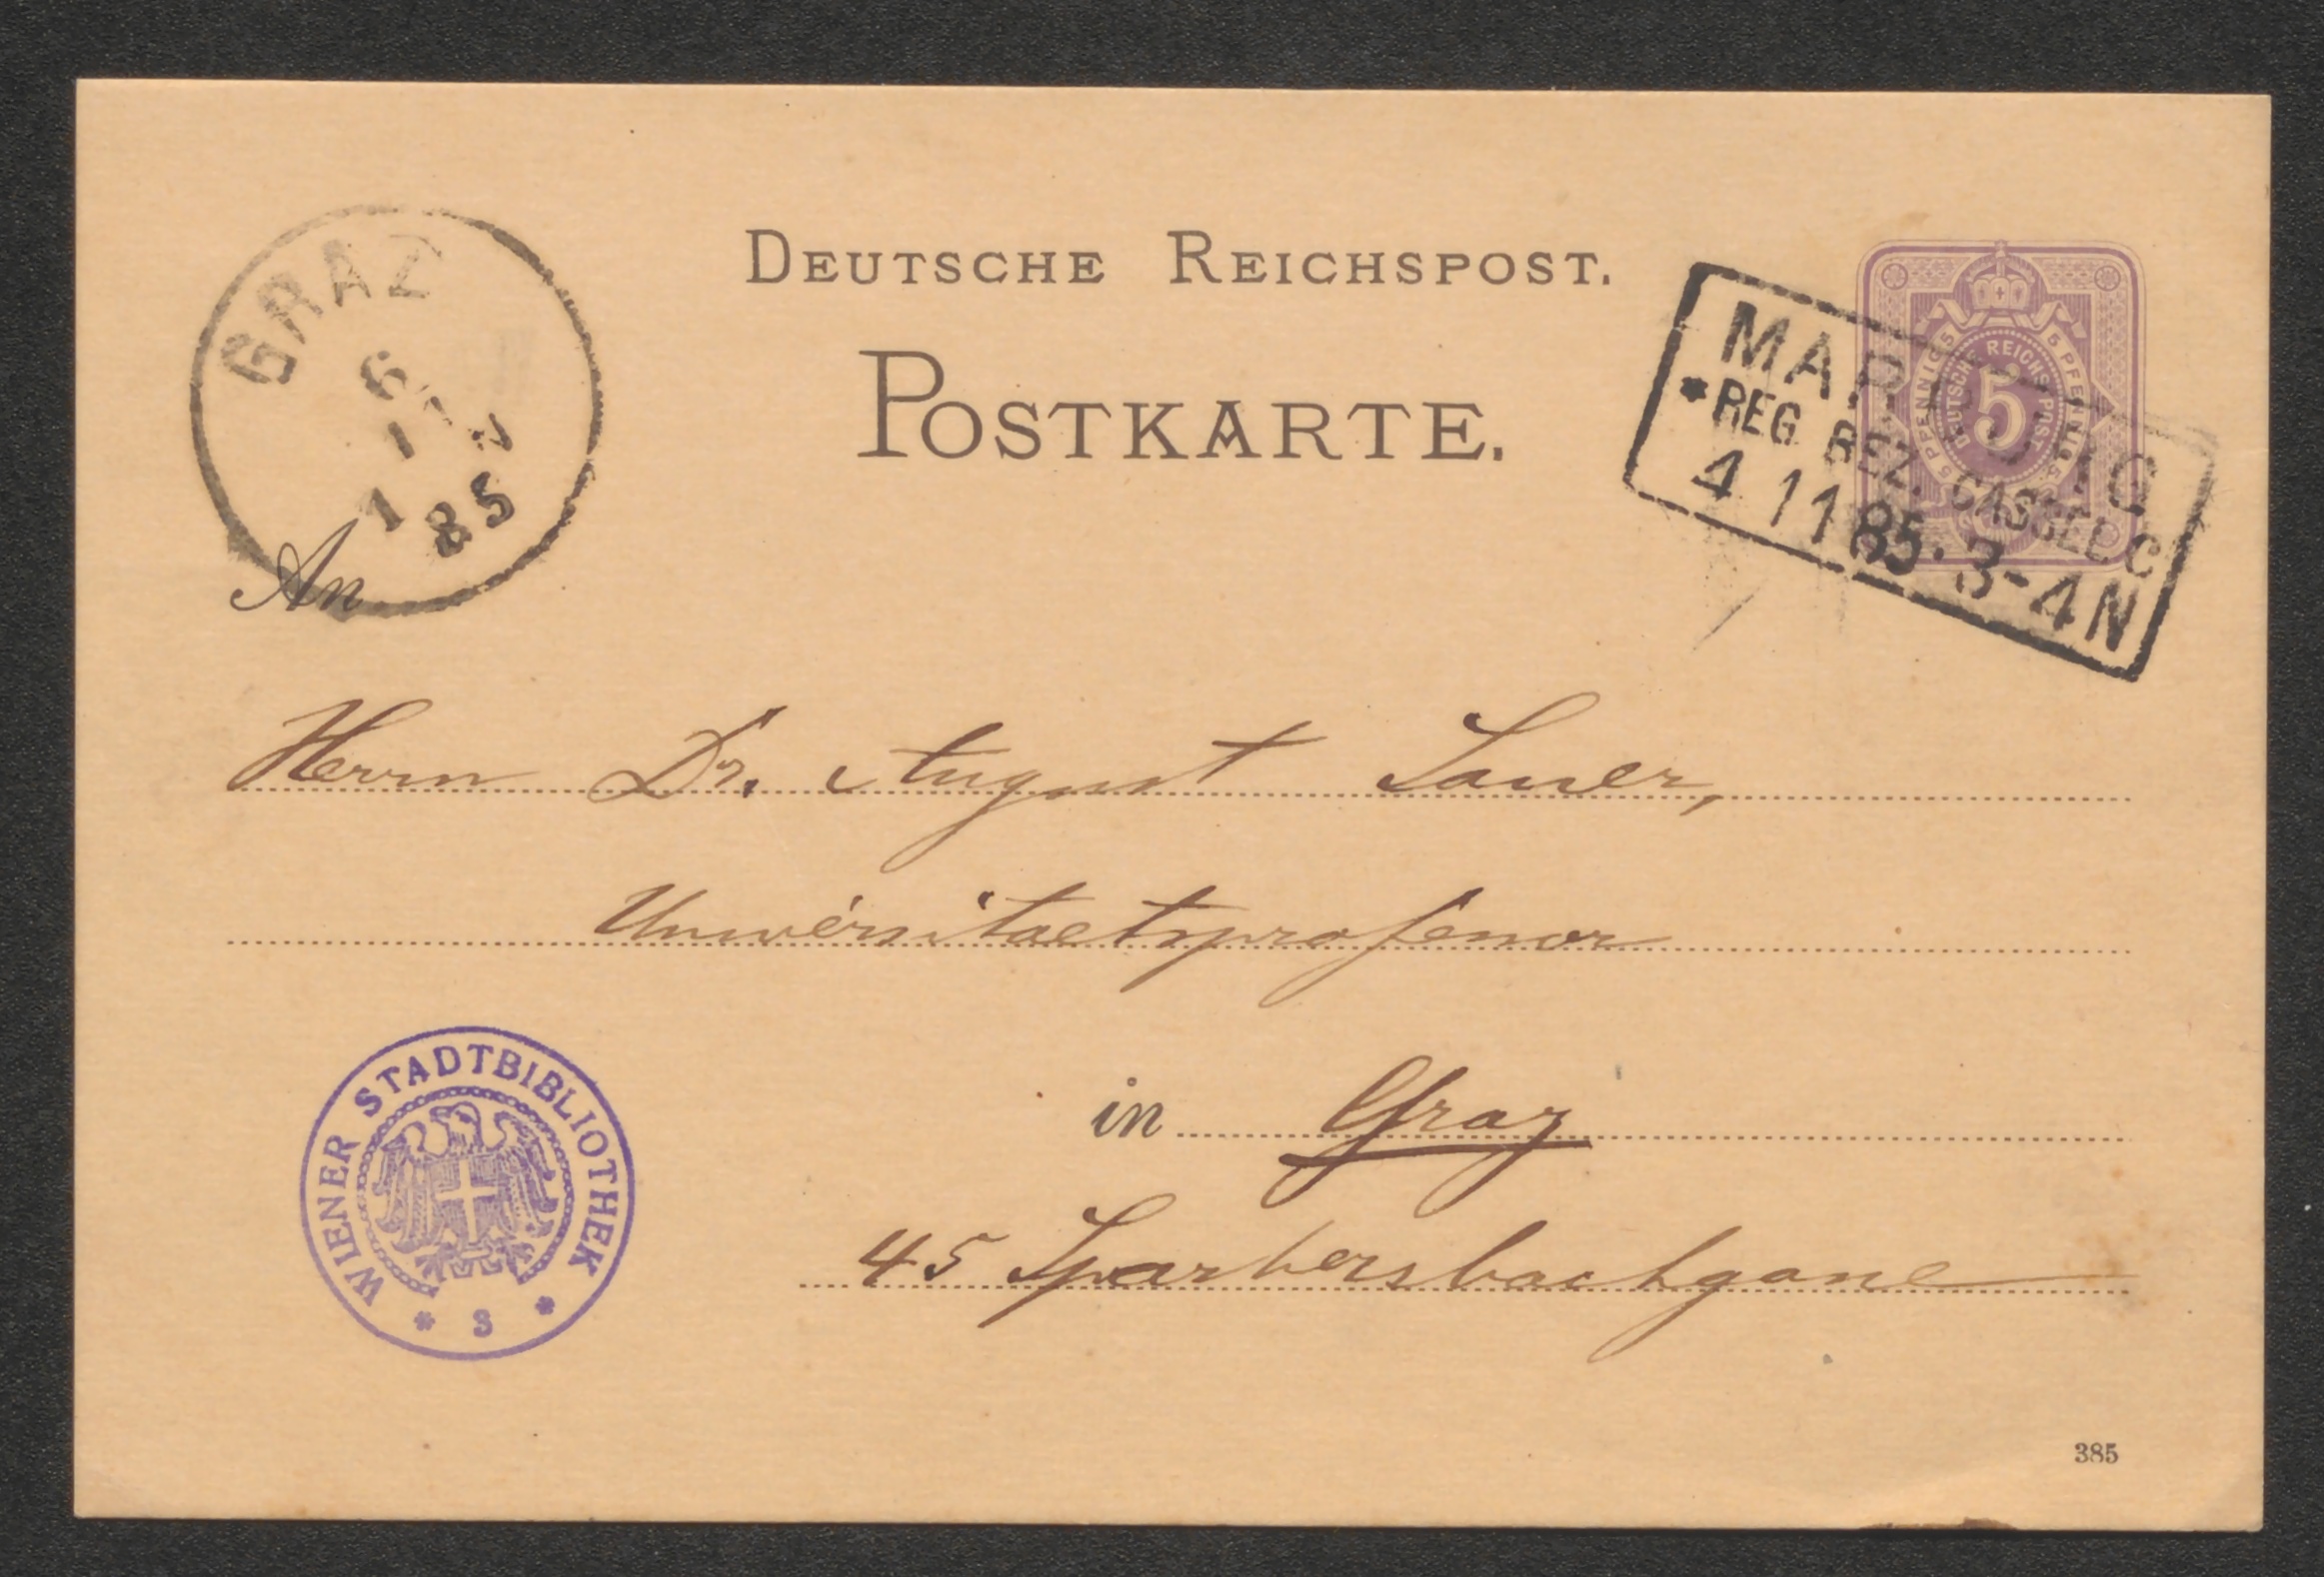 DEUTSCHE REICHSPOST.
POSTKARTE.
GRAZ
6
1
85
MARBURG
*REG. BEZ. CASSEL C
4 11 85. 3-4N
5 PFENNIG 5 5 PFENNIG 5
DEUTSCHE REICHSPOST
5
An
Herrn Dr. August Sauer,
Universitaetsprofessor
in Graz
45 Sparbersbachgasse
WIENER STADTBIBLIOTHEK
* S *
385